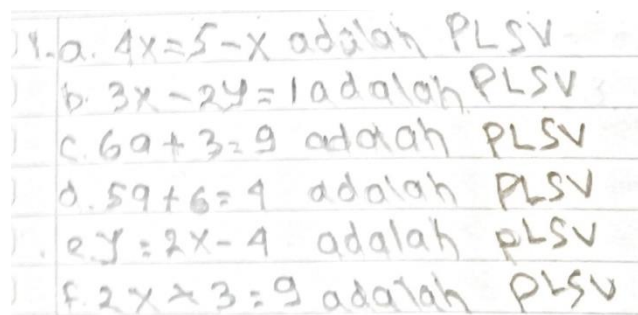 1. a. 4x=5-x adalah PLSV
b. 3x-2y=1 adalah PLSV
c. 6a+3=9 adalah PLSV
d. 5a+6=4 adalah PLSV
e. y=2x-4 adalah PLSV
f. 2x×3=9 adalah PLSV